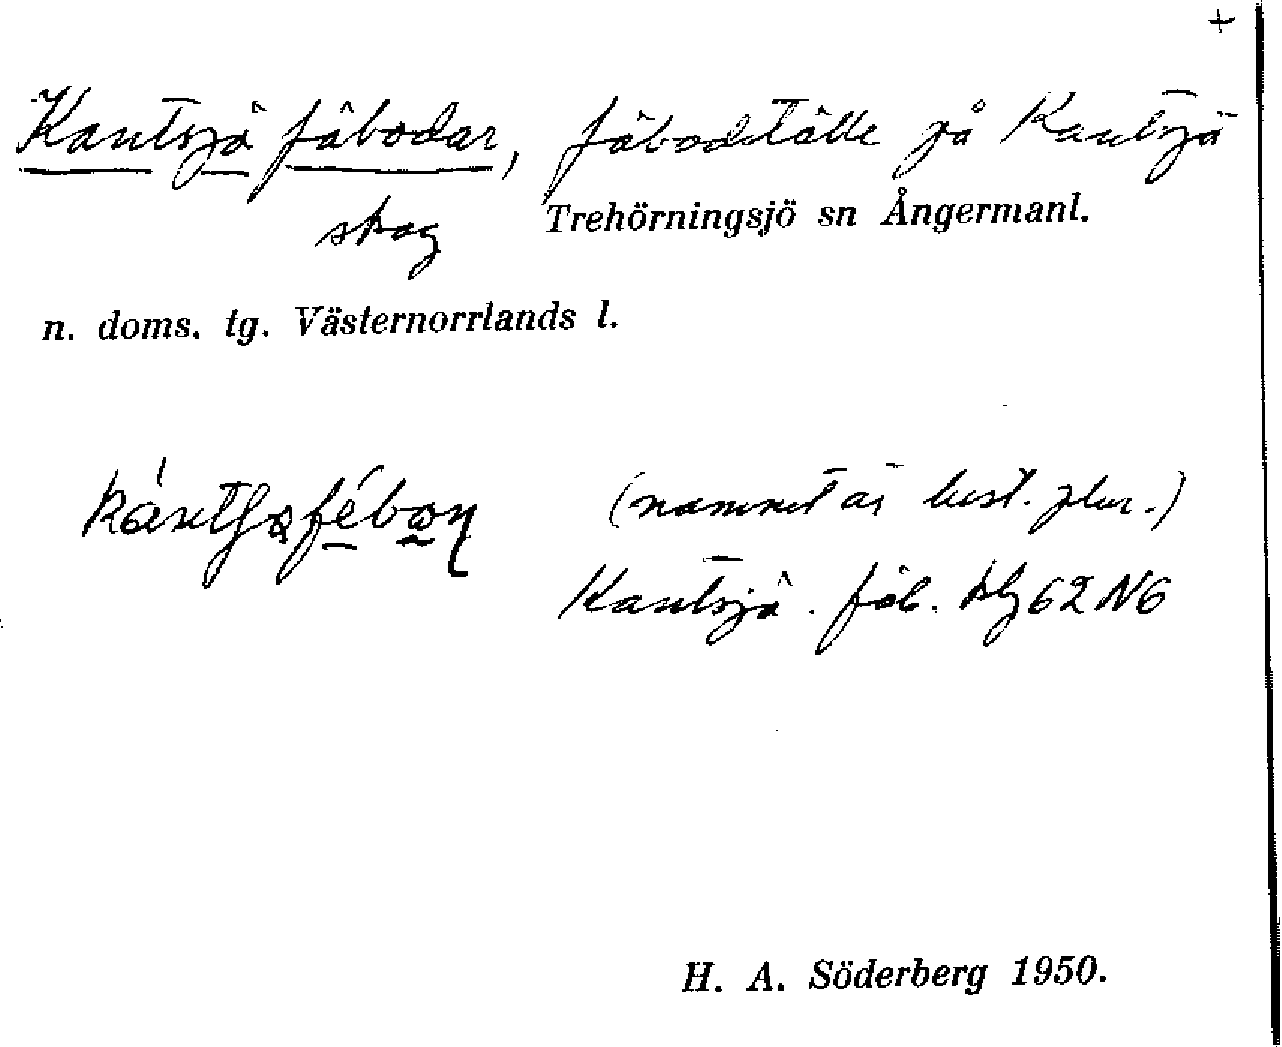 +
Kantsjö fäbodar, fäbodställe på Kantsjö
skog Trehörningsjö sn Ångermanl.
n. doms. tg. Västernorrlands l.
(namnet är best. plur.)
Kantsjö. fäb. blg 62 N6
H. A. Söderberg 1950.